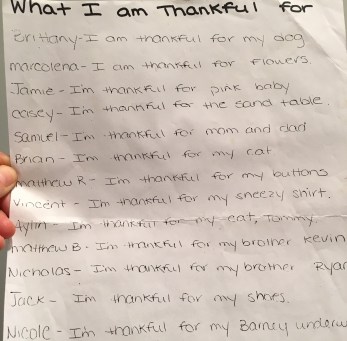 What I am Thankful for
Brittany-I am thankful for my dog
marcelena- I am thankful for Flowers.
Jamie - I'm thankful for pink baby
casey- I'm thankful for the sand table.
Samuel- I'm thankful for mom and dad
Brian - I'm thankful for my cat
matthew R - I'm thankful for my buttons
Vincent - I'm thankful for my sneezy shirt.
Aylin - I'm thankful for my cat, Tommy
matthew B - I'm thankful for my brother Kevin
Nicholas - I'm thankful for my brother Ryan
Jack - I'm thankful for my shoes.
Nicole - I'm thankful for my Barney underw